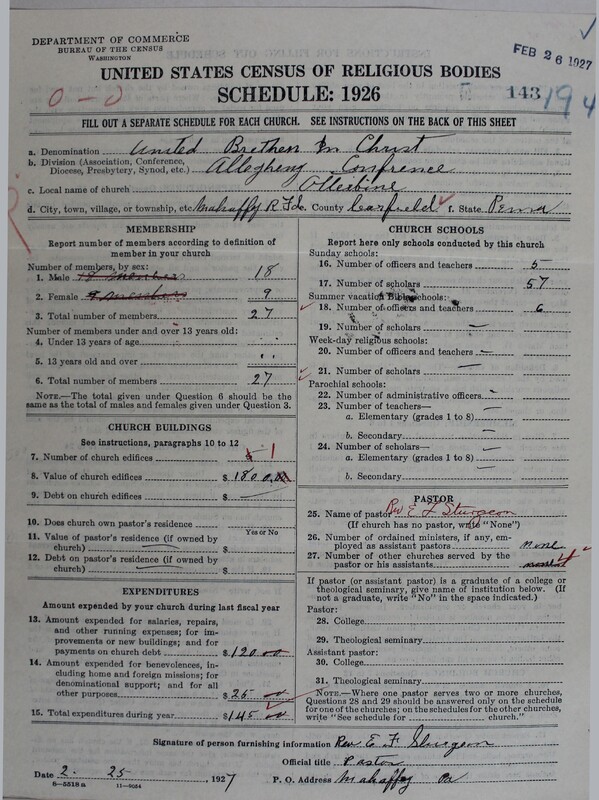 DEPARTMENT OF COMMERCE
BUREAU OF THE CENSUS
WASHINGTON
FEB 26 1927
UNITED STATES CENSUS OF RELIGIOUS BODIES
SCHEDULE: 1926
0-0
143
194
FILL OUT A SEPARATE SCHEDULE FOR EACH CHURCH. SEE INSTRUCTIONS ON THE BACK OF THIS SHEET
a. Denomination United Brethen In Christ
b. Division (Association, Conference, Diocese, Presbytery, Synod, etc.) Allegheny Confrence
c. Local name of church Otterbine
d. City, town, village, or township, etc. Mahaffy R Fd. County Cearfield f. State Penna
MEMBERSHIP
Report number of members according to definition of member in your church
Number of members, by sex:
1. Male 18 members 18
2. Female 9 members 9
3. Total number of members 27
Number of members under and over 13 years old:
4. Under 13 years of age
5. 13 years old and over
6. Total number of members 27
NOTE.—The total given under Question 6 should be the same as the total of males and females given under Question 3.
CHURCH BUILDINGS
See instructions, paragraphs 10 to 12
7. Number of church edifices 1
8. Value of church edifices $ 1800.00
9. Debt on church edifices $ —
10. Does church own pastor's residence
Yes or No
11. Value of pastor's residence (if owned by church) — $
12. Debt on pastor's residence (if owned by church) — $
EXPENDITURES
Amount expended by your church during last fiscal year
13. Amount expended for salaries, repairs, and other running expenses; for improvements or new buildings; and for payments on church debt $ 120 00
14. Amount expended for benevolences, including home and foreign missions; for denominational support; and for all other purposes $ 25 00
15. Total expenditures during year $ 145 00
CHURCH SCHOOLS
Report here only schools conducted by this church
Sunday schools:
16. Number of officers and teachers 5
17. Number of scholars 57
Summer vacation Bible schools:
18. Number of officers and teachers 6
19. Number of scholars —
Week-day religious schools:
20. Number of officers and teachers —
21. Number of scholars —
Parochial schools:
22. Number of administrative officers —
23. Number of teachers—
a. Elementary (grades 1 to 8) —
b. Secondary —
24. Number of scholars—
a. Elementary (grades 1 to 8) —
b. Secondary —
PASTOR
25. Name of pastor Rev E F Sturgeon
(If church has no pastor, write "None")
26. Number of ordained ministers, if any, employed as assistant pastors none
27. Number of other churches served by the pastor or his assistants
If pastor (or assistant pastor) is a graduate of a college or theological seminary, give name of institution below. (If not a graduate, write "No" in the space indicated.)
Pastor:
28. College
29. Theological seminary
Assistant pastor:
30. College
31. Theological seminary
NOTE.—Where one pastor serves two or more churches, Questions 28 and 29 should be answered only on the schedule for one of the churches; on the schedules for the other churches, write "See schedule for church."
Signature of person furnishing information Rev. E F Sturgeon
Official title Pastor
Date 2 - 25, 1927
P. O. Address Mahaffy Pa
8—5518a 11—9064